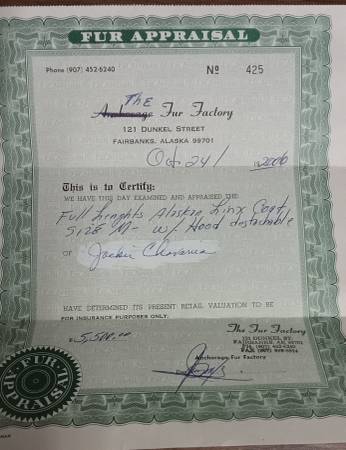 FUR APPRAISAL
Phone (907) 452-6240 No 425
THE
Anchorage Fur Factory
121 DUNKEL STREET
FAIRBANKS, ALASKA 99701
Oct. 24 / 2006
This is to Certify:
WE HAVE THIS DAY EXAMINED AND APPRAISED THE
Full Lenghts Alaskan Linx Coat
Size M- w/ Hood detachable
OF Jackie
HAVE DETERMINED ITS PRESENT RETAIL VALUATION TO BE
FOR INSURANCE PURPOSES ONLY.
$ 5,500.00
The Fur Factory
121 DUNKEL ST.
FAIRBANKS, AK 99701
PH. (907) 452-6240
Anchorage Fur Factory
FUR APPRAISAL